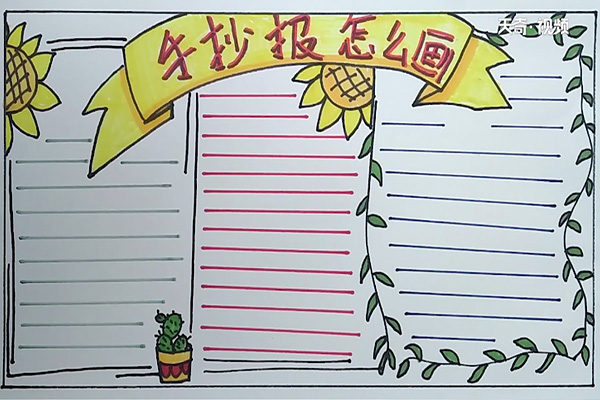 手抄报怎么画
天奇·视频